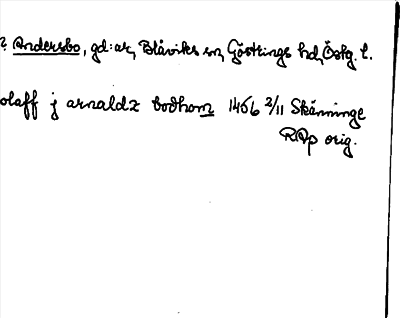 ? Andersbo, gd: ar, Blåviks sn, Göstrings hd, Östg. l.
olaff j arnaldz bodhom 1456 2/11 Skänninge
RAp orig.